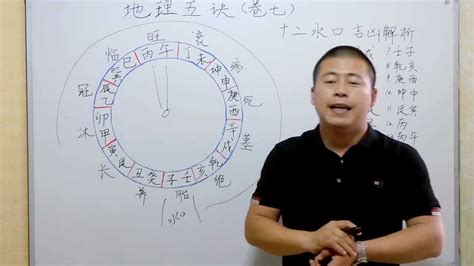 地理五诀(卷七)
十二水口吉凶解析
旺
临 衰
丙午
巳 丁未
巽 坤申
病
冠
辰
乙
庚
酉
死
卯
甲
沐
辛
戌
墓
寅
艮
长
丑癸
子壬
亥乾
绝
养
胎
水口
7 壬子
8 乾亥
9 庚酉
坤申
艮寅
12 丙
丙午